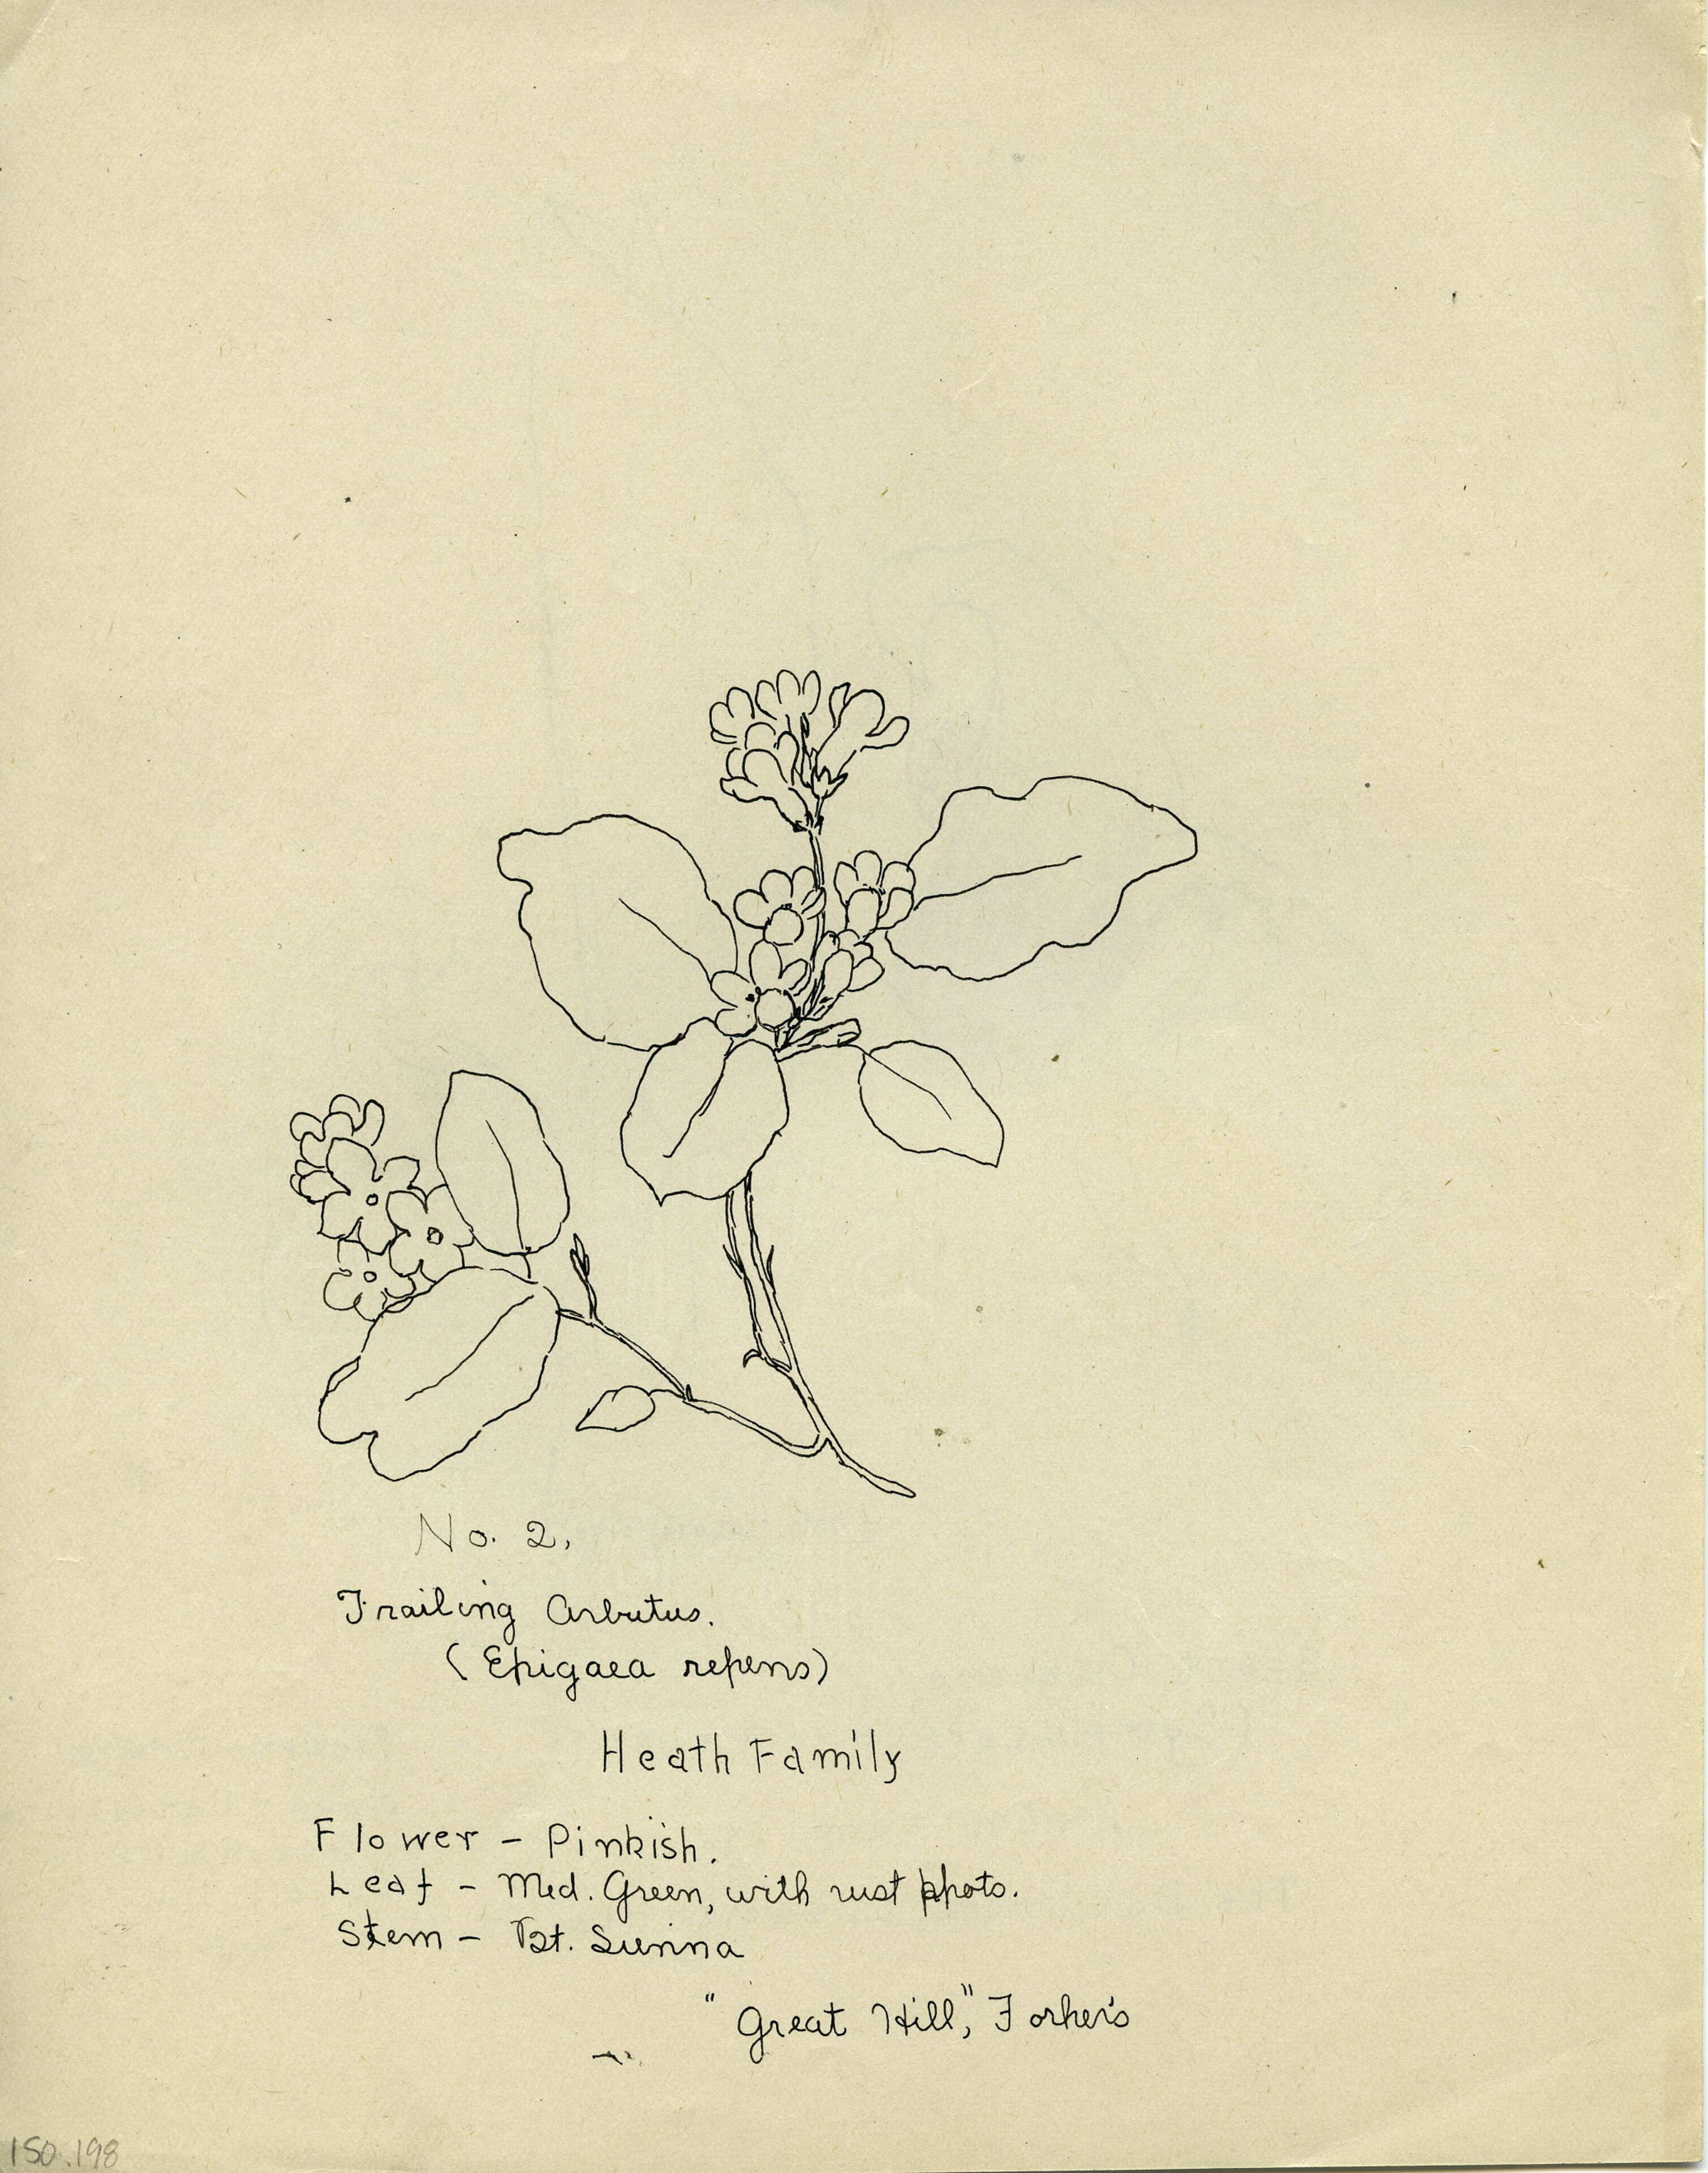 No. 2.
Trailing Arbutus.
(Epigaea repens)
Heath Family
Flower – Pinkish.
Leaf – Med. Green, with rust
Stem – Bt. Sienna
"Great Hill,"
150.198